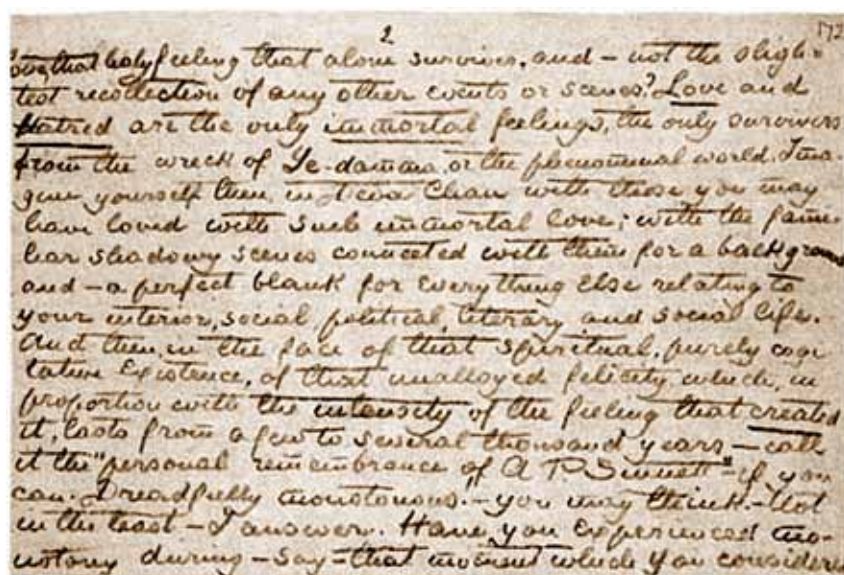 2
172
love that holy feeling that alone survives, and — not the sligh-
test recollection of any other events or scenes? Love and
Hatred are the only immortal feelings, the only survivors
from the wreck of Ye-damma, or the phenomenal world. Ima-
gine yourself then, in Deva Chan with those you may
have loved with such immortal love; with the fami-
liar shadowy scenes connected with them for a background
and — a perfect blank for everything else relating to
your interior, social, political, literary and social life.
And then, in the face of that spiritual, purely cogi-
tative existence, of that unalloyed felicity which, in
proportion with the intensity of the feeling that created
it, lasts from a few to several thousand years — call
it the "personal remembrance of A P. Sinnett" — if you
can. Dreadfully monotonous! — you may think. — Not
in the least — I answer. Have you experienced mo-
notony during — say — that moment which you considere